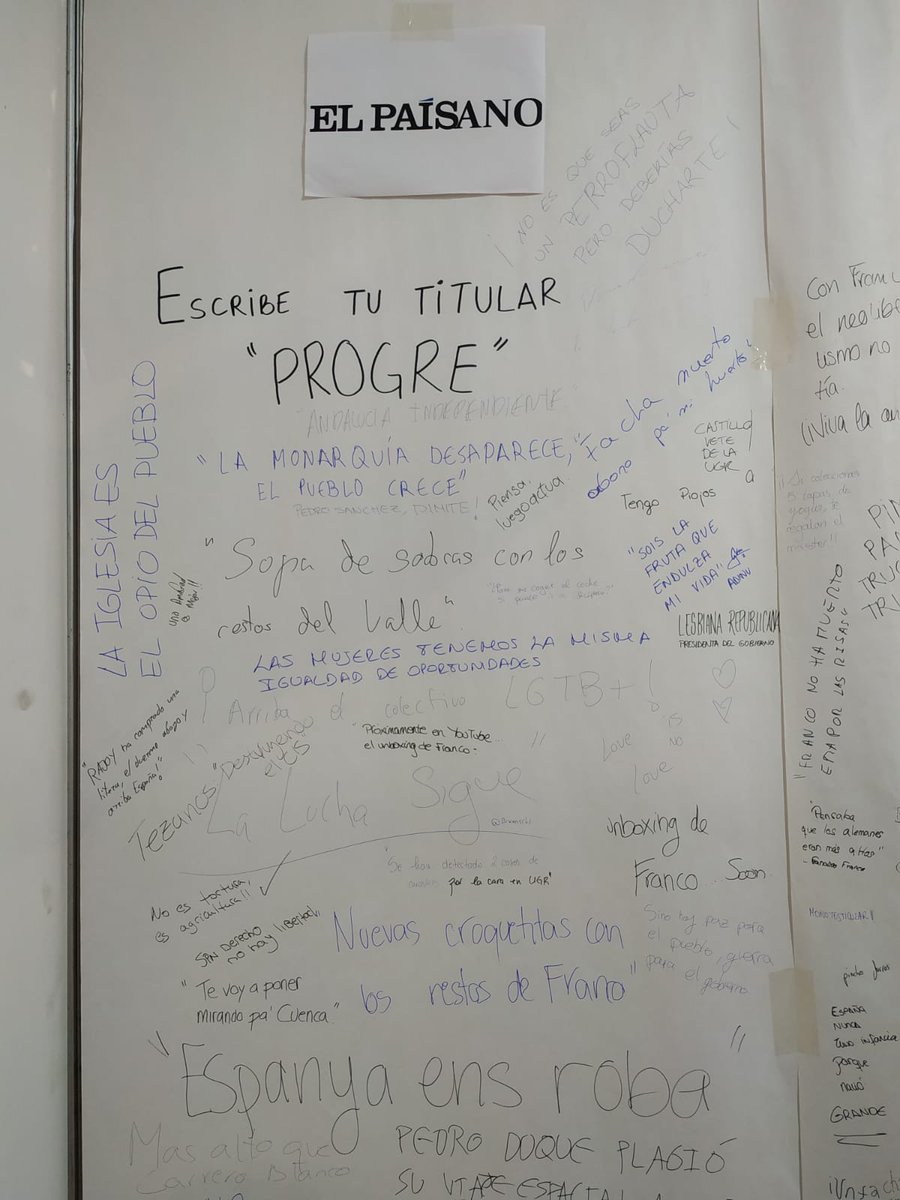 EL PAÍSANO
¡ NO ES QUE SEAS
UN PERROFLAUTA
PERO DEBERÍAS
DUCHARTE !
ESCRIBE TU TITULAR
"PROGRE"
LA IGLESIA ES
EL OPIO DEL PUEBLO
"ANDALUCIA INDEPENDIENTE"
"LA MONARQUÍA DESAPARECE,
EL PUEBLO CRECE"
PEDRO SANCHEZ, DIMITE!
Piensa,
luego actua
"Facha muerto
abono pa' mi huerto"
CASTILLO
VETE
DE LA
UGR
Tengo Piojos
"Sopa de sobras con los
restos del Valle"
"SOIS LA
FRUTA QUE
ENDULZA
MI VIDA"
LESBIANA REPUBLICANA
PRESIDENTA DEL GOBIERNO
LAS MUJERES TENEMOS LA MISMA
IGUALDAD DE OPORTUNIDADES
¡Arriba el colectivo LGTB+!
"Próximamente en YouTube
el unboxing de Franco"
Love is
no
love
"PADDY ha comprado una
litera, el duerme abajo y
arriba España!"
Tezanos "Desayunando
el CIS
La Lucha Sigue
unboxing de
Franco... Soon
"Se han detectado 2 casos de
por la cara en UGR"
No es tortura,
es agricultura!!
SIN Derecho
no hay libertad!
Nuevas croquetitas con
los restos de Franco"
Si no hay paz para
el pueblo, guerra
para el gobierno
"Te voy a poner
mirando pa' Cuenca"
"Espanya ens roba"
Mas alto que
Carrero Blanco
PEDRO DUQUE PLAGIÓ
SU VIAJE ESPACIAL
Con Fran
el neolibe
usmo no
tía.
¡Viva la
¡¡Si colecciones
5 tapas de
yogur, te
regalan el
máster!!
PIN
PA
TRU
TRI
"FRANCO NO HA MUERTO
EPIA POR LAS RISAS"
"Pensaba
que los alemanes
eran más altos"
MONOTESTICULAR!!
ESPAÑA
NUNCA
tuvo infancia
porque
nació
GRANDE